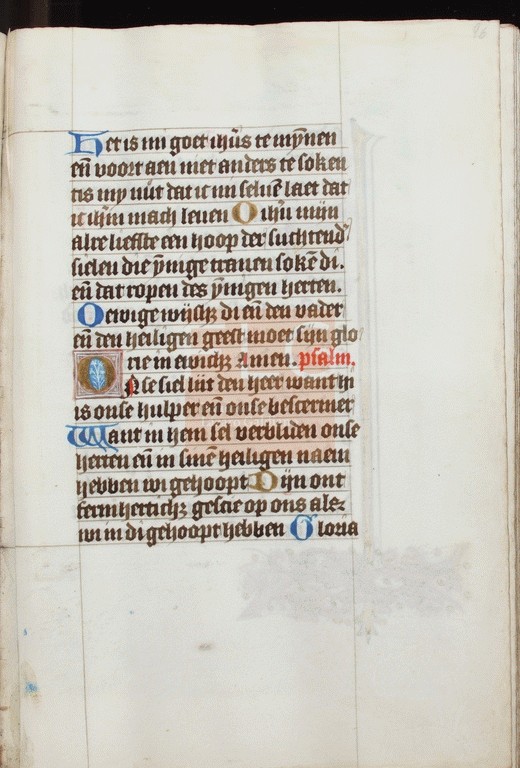 96
Het is mi goet ih̄us te mȳnen
en̄ voort aen niet anders te soken
tis my nut dat ic mi seluē laet dat
ic ih̄m mach leuen O ih̄u mijn
alre liefste een hoop der suchtend᾽
sielen die ȳnige tranen sokē di.
en̄ dat ropen des ȳnigen herten.
O ewige wijsh᷒ di en̄ den vader
en̄ den heiligen geest moet sijn glo
rie in ewich᷒ Amen. psalm.
Onse siel lijt den heer want hi
is onse hulper en̄ onse bescermer
Want in hem sel verbliden onse
herten en̄ in sinē heiligen naem
hebben wi gehoopt Dijn ont
fermhertich᷒ gescie op ons alez
wi in di gehoopt hebben Gloria